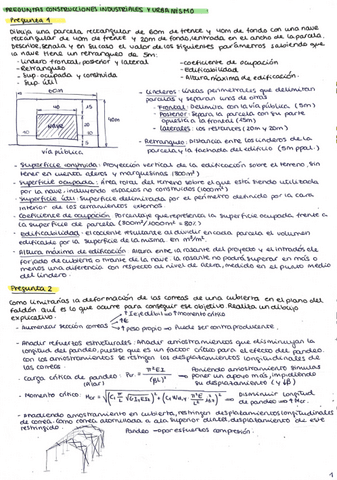 PREGUNTAS CONSTRUCCIONES INDUSTRIALES Y URBANISMO
Pregunta 1
Dibuja una parcela rectangular de 60m de frente y 40m de fondo con una nave
rectangular de 40m de frente y 20m de fondo, centrada en el ancho de la parcela.
Describe, señala y en su caso el valor de los siguientes parámetros sabiendo que
la nave tiene un retranqueo de 5m:
- Lindero frontal, posterior y lateral
- Retranqueo
- Sup. ocupada y construida
- Sup. útil
- Coeficiente de ocupación
- Edificabilidad
- Altura máxima de edificación.
60m
40
15
20
NAVE
40m
5
vía pública
- Linderos: Líneas perimetrales que delimitan
parcelas y separan unas de otras
- Frontal: Delimita con la vía pública (5m)
- Posterior: Separa la parcela con su parte
opuesta a la frontal (15m)
- Laterales: Los restantes
- Retranqueo: Distancia entre los linderos de la
parcela y la fachada del edificio
- Superficie construida: Proyección vertical de la edificación sobre el terreno, sin
tener en cuenta aleros y marquesinas (800m²)
- Superficie ocupada: Área total del terreno sobre el que está siendo utilizada
por la nave, incluyendo espacios no construidos
- Superficie útil: Superficie delimitada por el perímetro definido por la cara
interior de los cerramientos externos
- Coeficiente de ocupación: Porcentaje que representa la superficie ocupada frente a
la superficie de parcela
- Edificabilidad: cociente resultante al dividir en cada parcela el volumen
edificado por la superficie de la misma, en m³/m².
- Altura máxima de edificación: Altura entre la rasante del proyecto y el intradós del
forjado de cubierta o tirante de la nave. La rasante no podrá superar en más o
menos una diferencia con respecto al nivel de acera, medida en el punto medio
del lindero.
Pregunta 2
Como limitarías la deformación de las correas de una cubierta en el plano del
faldón. Así es lo que ocurre para conseguir ese objetivo. Realiza un dibujo
explicativo.
- Aumentar sección correas
↑ peso propio ⇒ Puede ser contraproducente.
- Añadir refuerzos estructurales: Añadir arriostramientos que disminuyan la
longitud del pandeo, puesto que es un factor crítico para el efecto del pandeo.
Con los arriostramientos se restringen los desplazamientos longitudinales de
las correas.
- Carga crítica de pandeo: Pcr = π²EI / (βL)²
Poniendo arriostramiento simulas
poner un apoyo más, impidiendo
su desplazamiento
- Momento crítico: Mcr
Disminuir longitud
de pandeo ⇒ ↑ Mcr.
- Añadiendo arriostramiento en cubierta, restringen desplazamientos longitudinales
de correa. Como correa atornillada a ala superior dintel, desplazamiento de este
restringido.
Pandeo → por esfuerzos compresión.
1